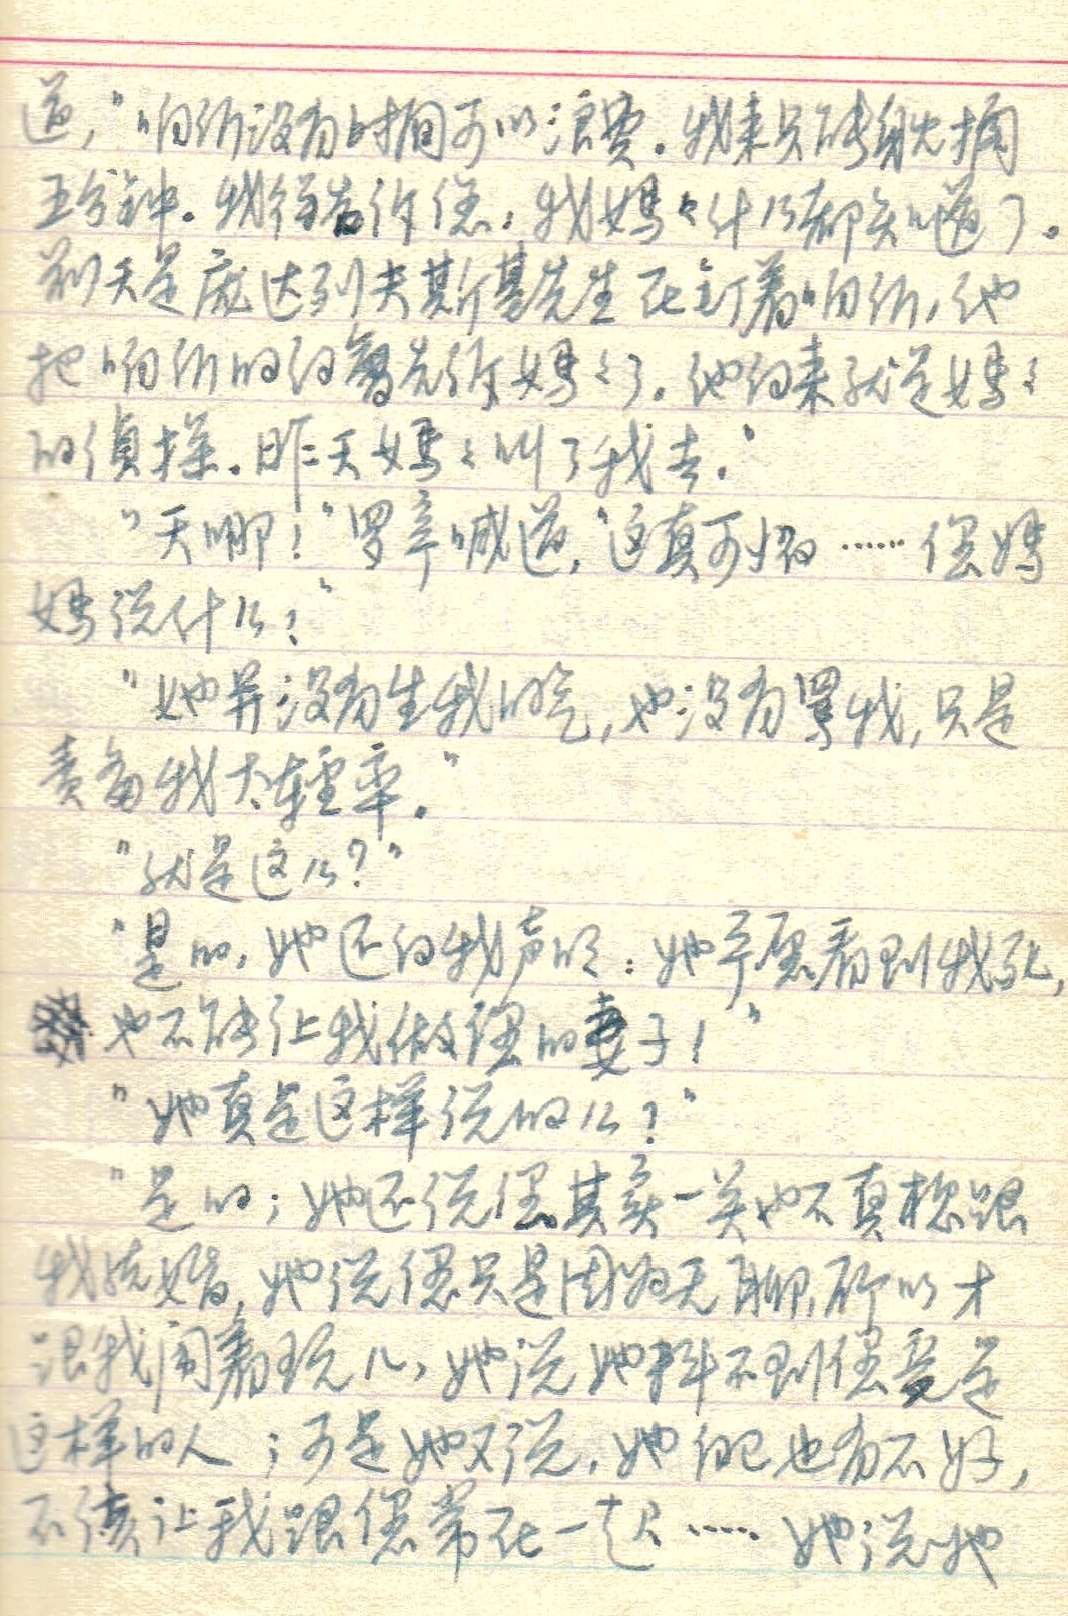 道，"咱们没有时间可以浪费。我来只能躭搁
五分钟。我得告诉您，我妈々什么都知道了。
前天是庞达列夫斯基先生在钉着咱们，他
把咱们的约会告诉妈々了。他向来就是妈々
的侦探。昨天妈々叫了我去。"
"天哪！"罗亭喊道，"这真可怕……您妈
妈说什么？"
"她并没有生我的气，也没有骂我，只是
责备我太轻率。"
"就是这么？"
"是的，她还向我声明：她宁愿看到我死，
也不能让我做您的妻子！"
"她真是这样说的么？"
"是的；她还说您其实一点也不真想跟
我结婚，她说您只是因为无聊，所以才
跟我闹着玩儿，她说她料不到您竟是
这样的人；可是她又说，她自己也有不好，
不该让我跟您常在一起……她说她